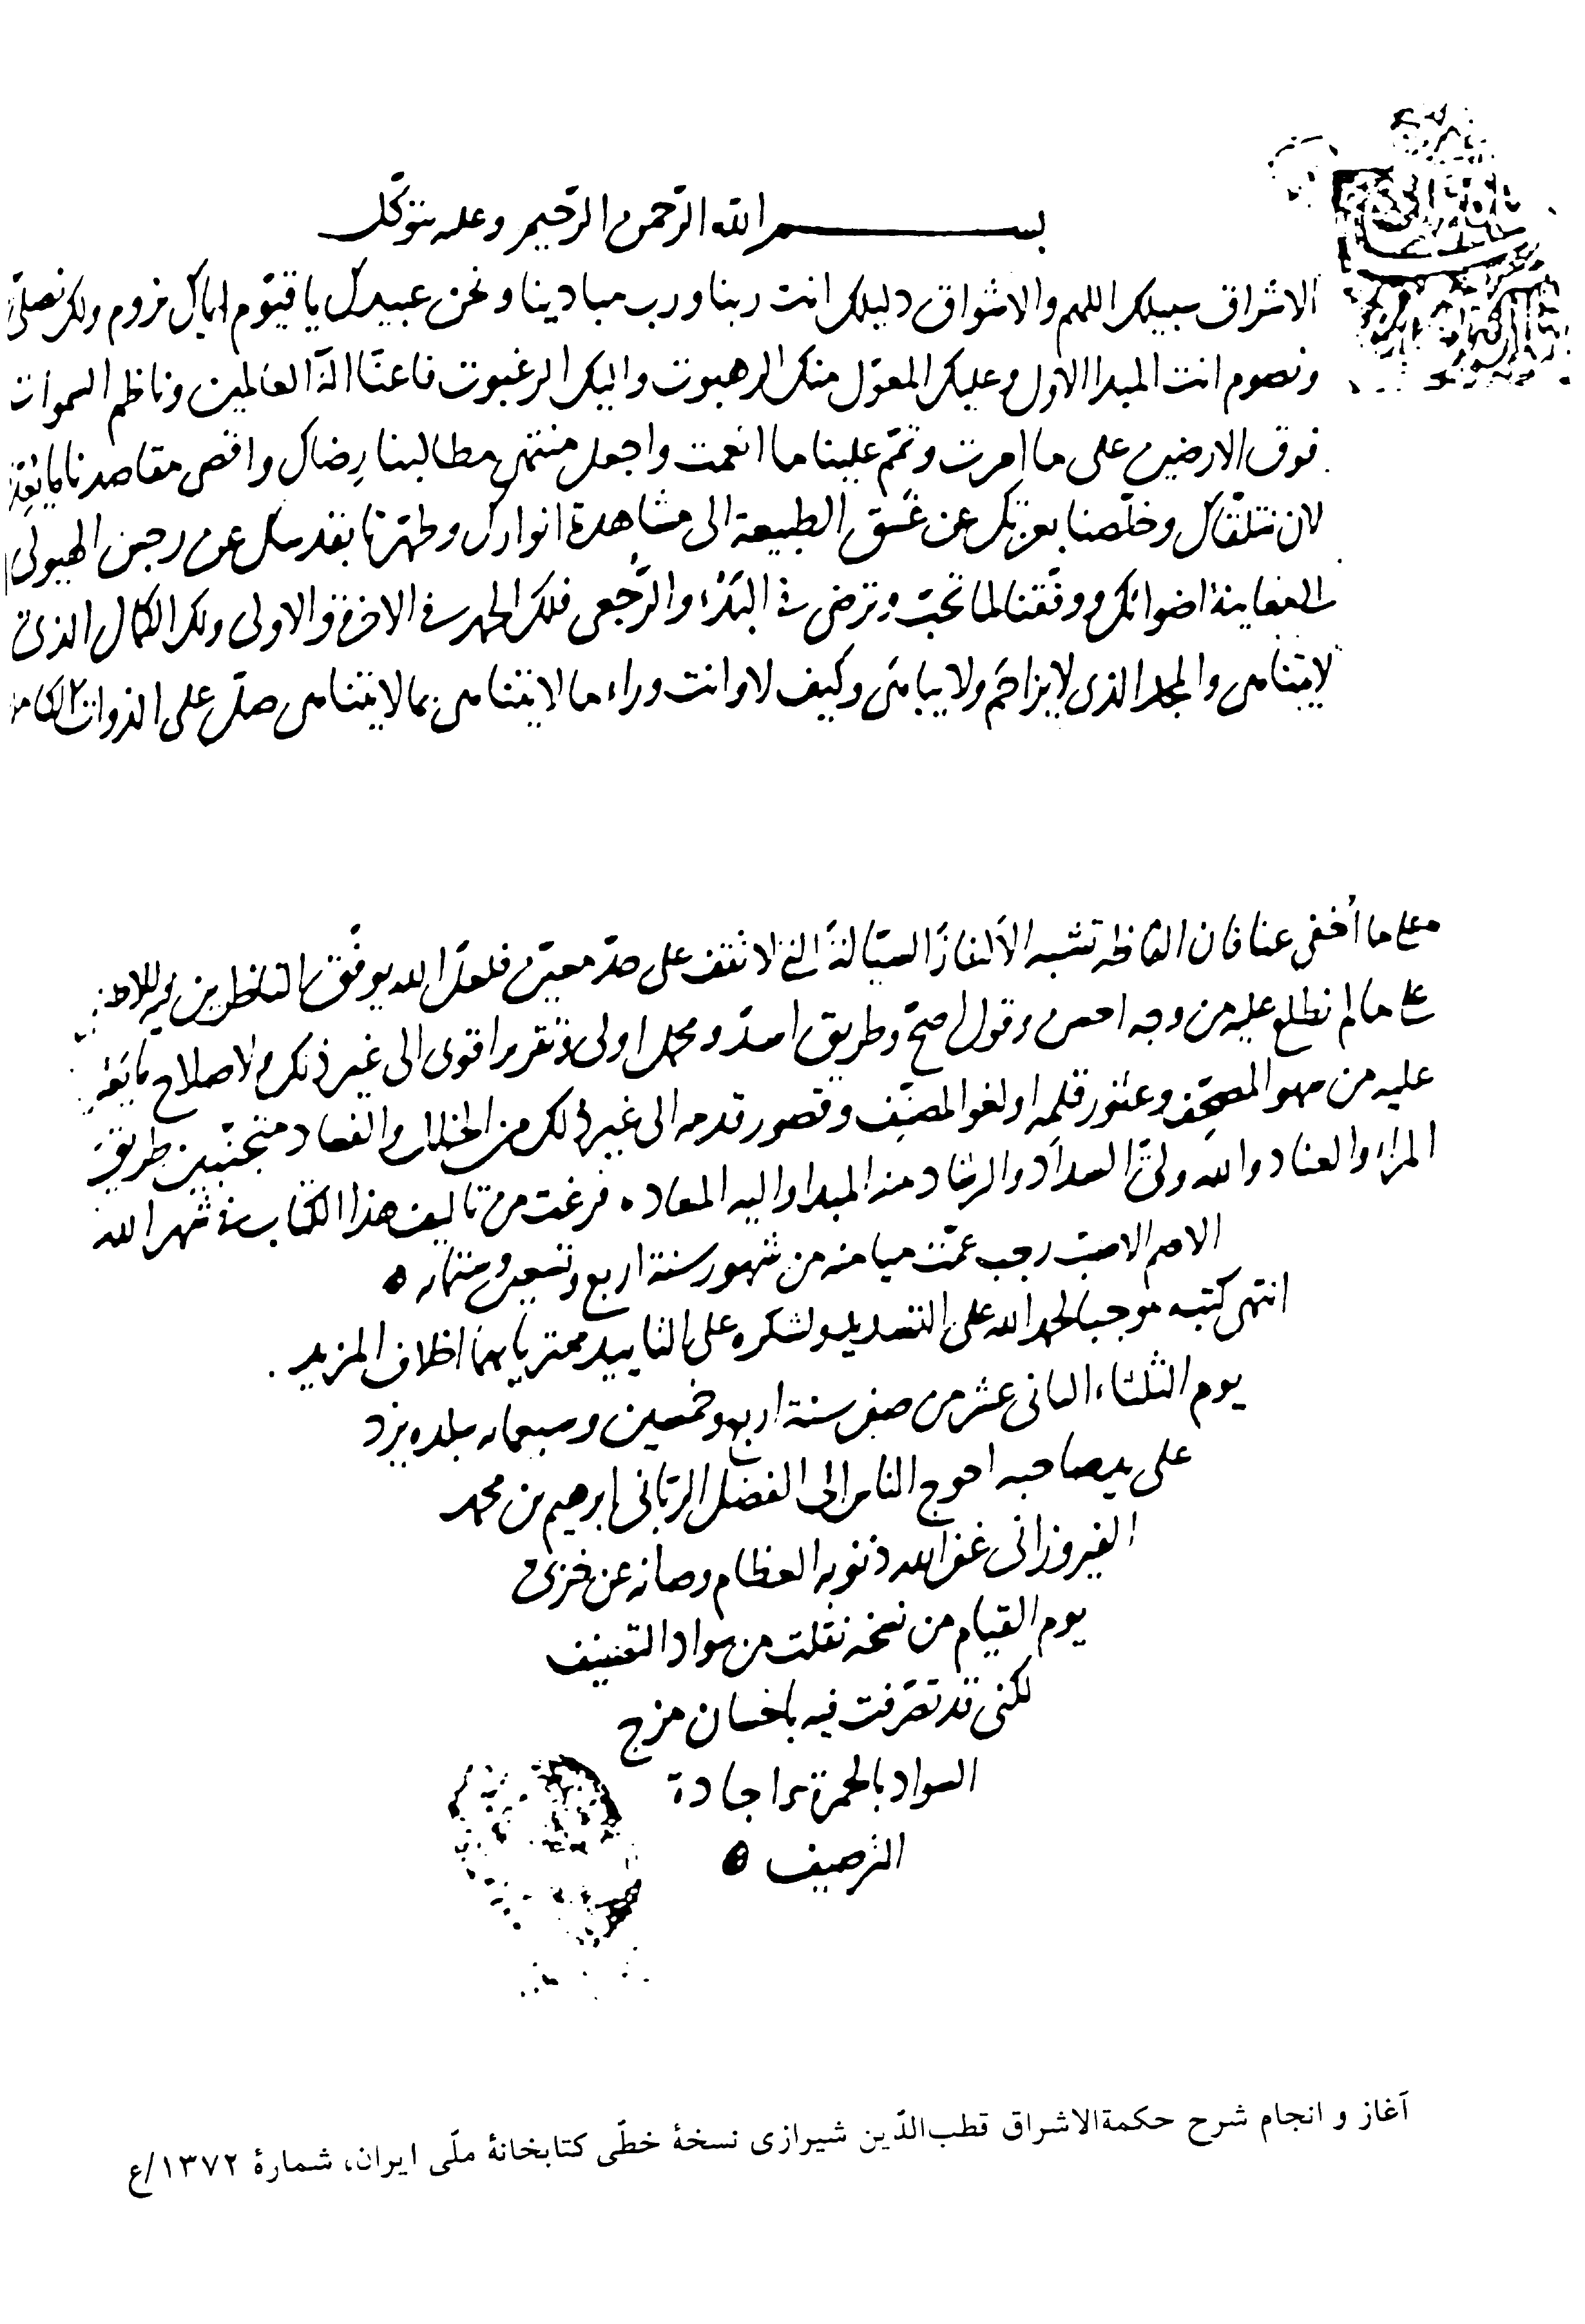 بسم الله الرحمن الرحیم وعلیه نتوکل
الاشراق سبیلک اللهم والاشواق دلیلک انت ربنا ورب مبادینا ونحن عبیدک یا قیّوم ایاک نروم ولک نصلّی
ونصوم انت المبدا الاول وعلیک المعوّل منک الرهبوت والیک الرغبوت فاعنّا الٓه العالمین وناظم السموات
فوق الارضین علی ما امرت وتمّم علینا ما انعمت واجعل منتهی مطالبنا رضاک واقص مقاصدنا
لان نتلقّاک وخلّصنا بعزتک عن غَسَق الطبیعة الی مشاهدة انوارک وطهّرنا بقدسک عن رجس الهیولی
اضوائک ووفّقنا لما تحبّ وترضی فی البَدْء والرُّجعی فلک الحمد فی الاخرة والاولی ولک الکمال الذی
لا یتناهی والمجد الذی لا یزاحَم ولا یباهَی وکیف لا وانت وراء ما لا یتناهی بما لا یتناهی صلّ علی الذوات الکاملة
ما أخفی عنا فان الفاظه تشبه الألغازَ السیّالةَ التی لا تقف علی حدّ معیّن فلعلّ الله یوفّق الناظرین فیه
علی ما لم نطلع علیه من وجه احسن وقول اصحّ وطریق اسدّ ومحمل اولی وتقریر اقوی الی غیر ذلک والاصلاح
علیه من سهو المصحّف وعثور قلمه او لغو المصنّف وقصور قدمه الی غیر ذلک من الخلل والفساد متجنّبین طریق
المراء والعناد والله ولیّ السداد والرشاد منه المبدا والیه المعاد ه فرغت من تالیف هذا الکتاب فی شهر الله
الاصم الاصبّ رجب عمّت میامنه من شهور سنة اربع وتسعین وستمائه ه
انتهی کتبه موجبا لحمد الله علی التسدید ولشکره علی التایید ممتریا بهما اخلاف المزید .
یوم الثلثاء الثانی عشر من صفر سنة اربع وخمسین وسبعمائه ببلده یزد
علی ید صاحبه احوج الناس الی الفضل الربّانی ابرهیم بن محمد
الفیروزانی غفر الله ذنوبه العظام وصانه عن خزی
یوم القیام من نسخه نقلت من سواد التصنیف
لکنی قد تصرّفت فیه باحسان مزج
السواد بالحمرة واجادة
الترصیف ه
آغاز و انجام شرح حکمةالاشراق قطب‌الدّین شیرازی نسخهٔ خطّی کتابخانهٔ ملّی ایران، شمارهٔ ۱۳۷۲/ع